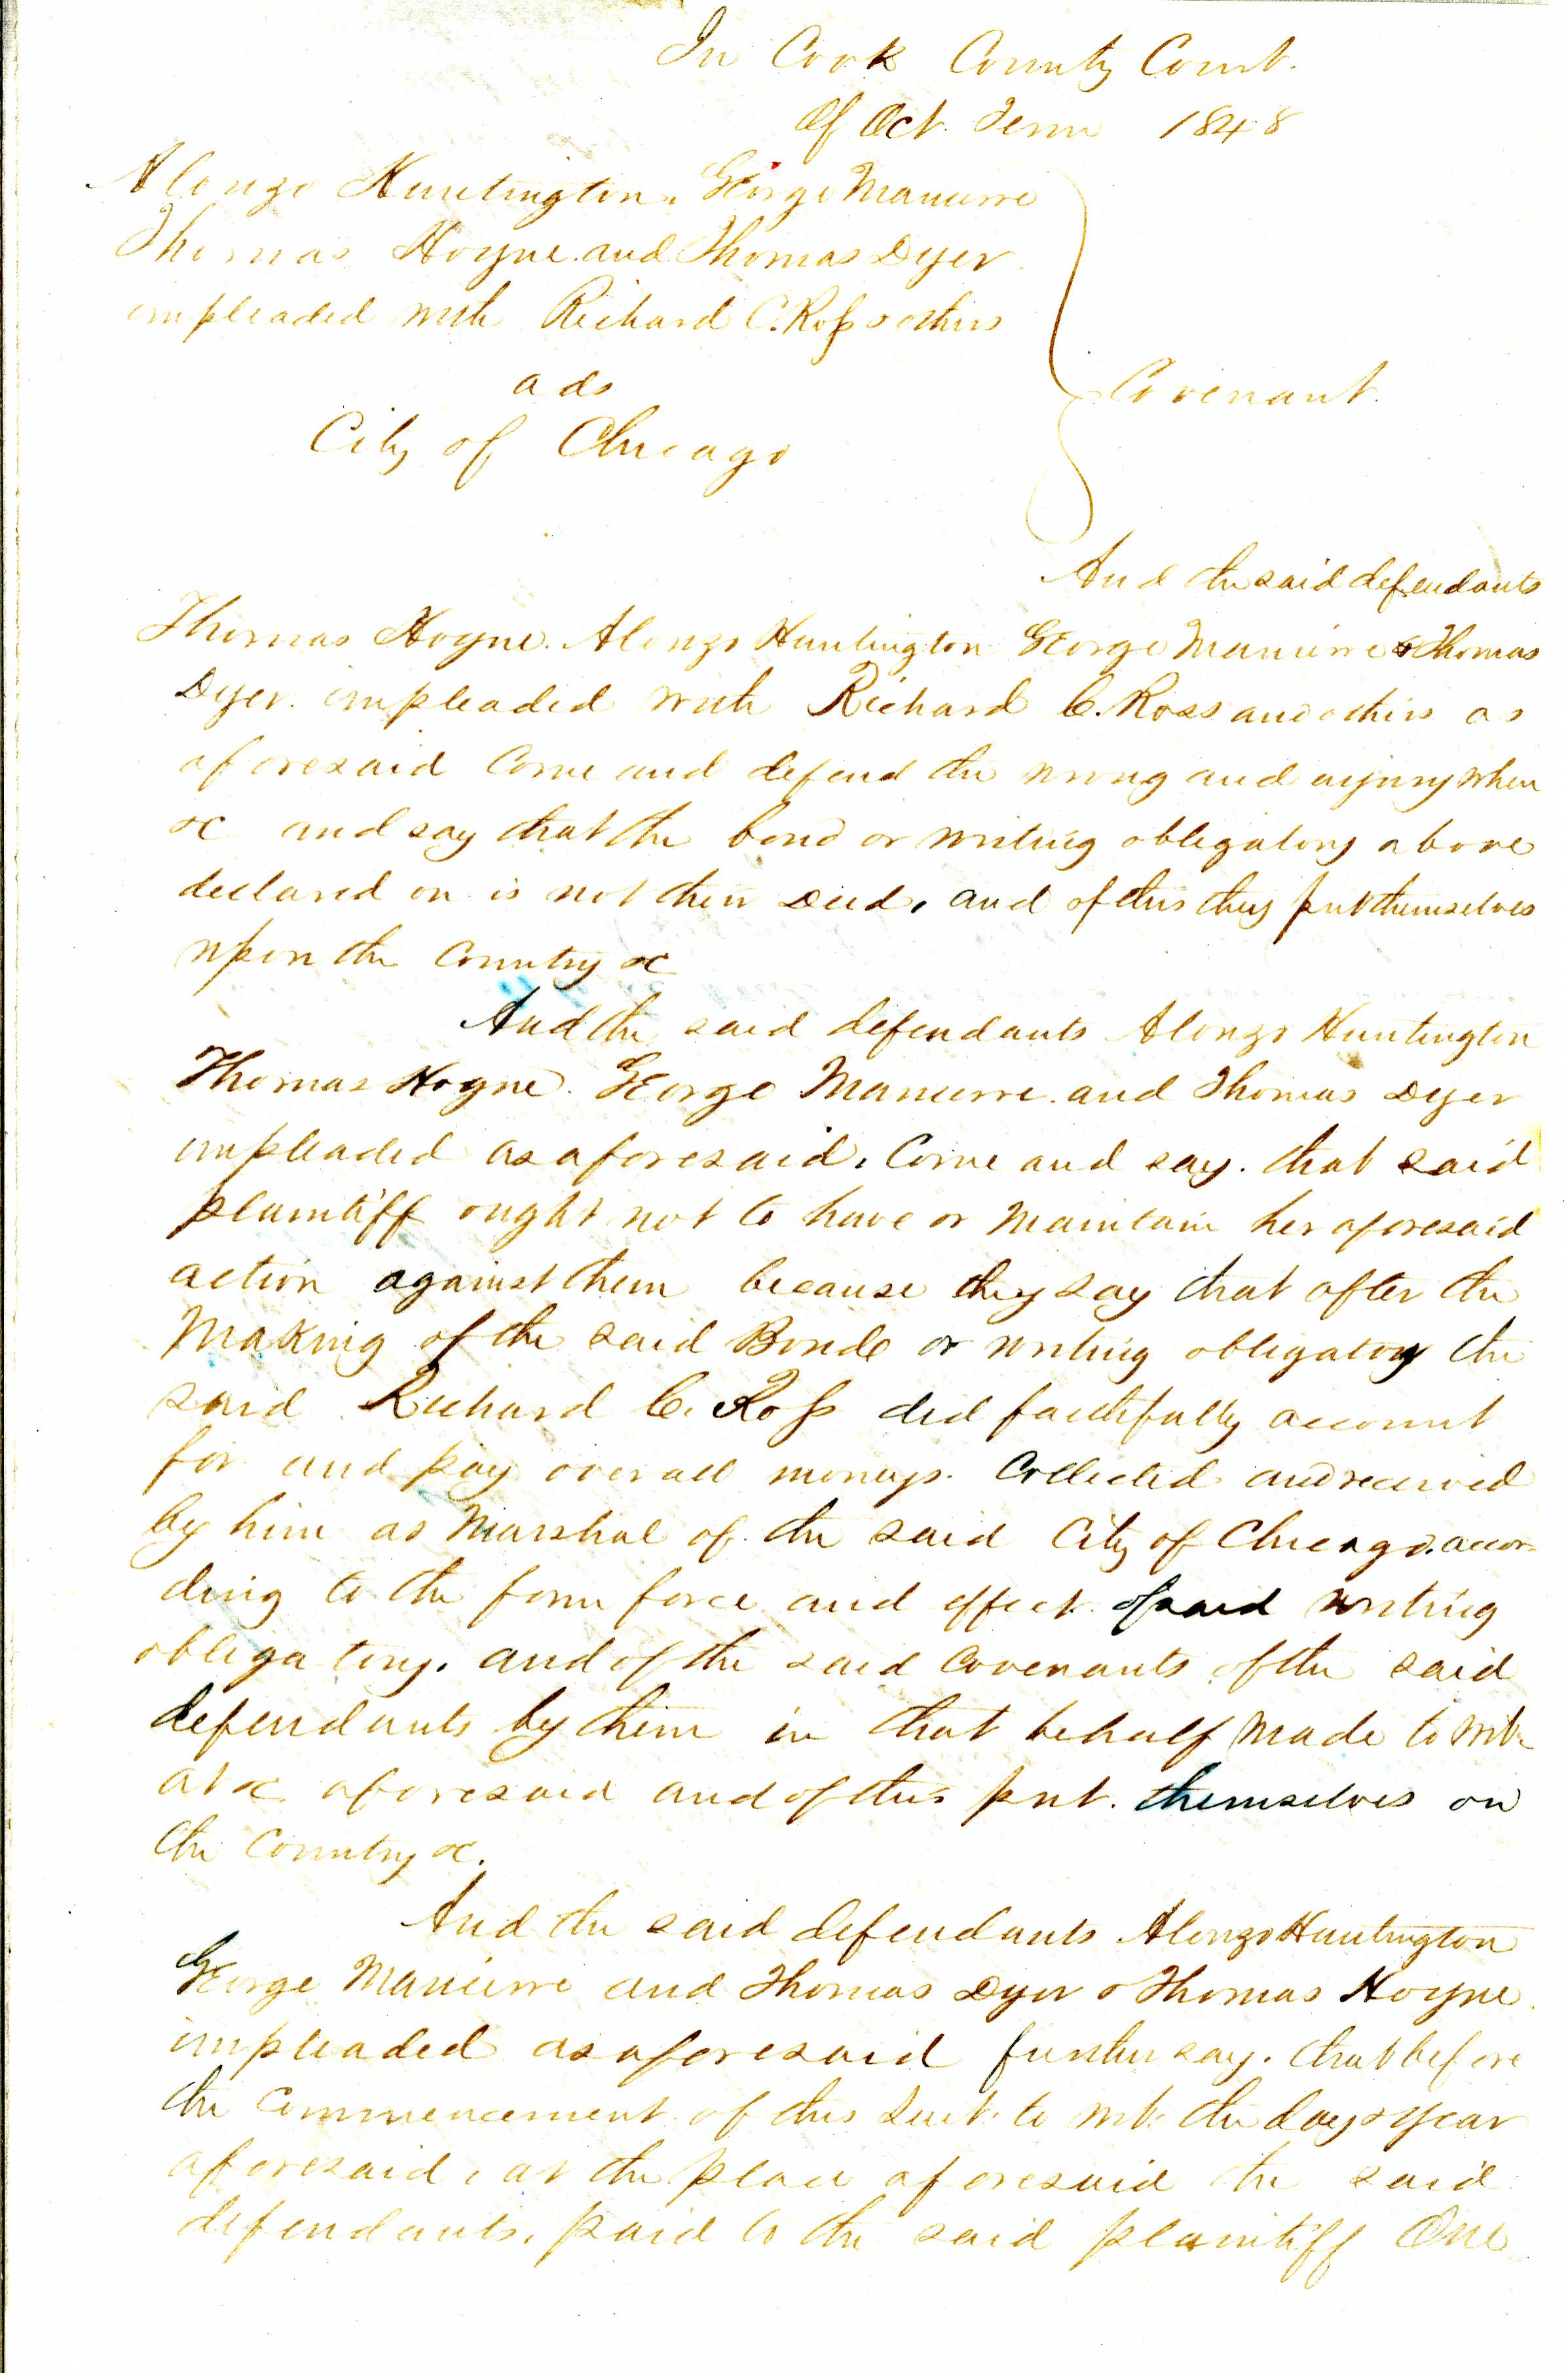 In Cook County Court.
Of Oct. Term 1848
Alonzo Huntington, George Manierre
Thomas Hoyne and Thomas Dyer
impleaded with Richard C. Ross & others
ads
City of Chicago
Covenant.
And the said defendants
Thomas Hoyne. Alonzo Huntington George Manierre & Thomas
Dyer. impleaded with Richard C. Ross and others as
aforesaid Come and defend the wrong and injury when
&c and say that the bond or writing obligatory above
declared on is not their Deed, and of this they put themselves
upon the Country &c
And the said defendants Alonzo Huntington
Thomas Hoyne. George Manierre. and Thomas Dyer
impleaded as aforesaid, Come and say. that said
plaintiff ought not to have or Maintain her aforesaid
action against them because they say that after the
Making of the said Bond or writing obligatory the
said Richard C. Ross did faithfully account
for and pay over all moneys. Collected and received
by him as Marshal of the said City of Chicago. accor-
ding to the form force and effect of said writing
obligatory. and of the said Covenants of the said
defendants by them in that behalf Made to wit.
at &c aforesaid and of this put themselves on
the Country &c.
And the said defendants Alonzo Huntington
George Manierre and Thomas Dyer & Thomas Hoyne.
impleaded as aforesaid further say. that before
the Commencement of this Suit. to wit. the day & year
aforesaid, at the place aforesaid the said
defendants, paid to the said plaintiff One